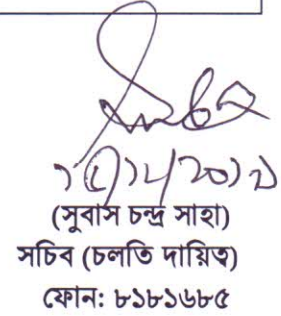 (সুবাস চন্দ্র সাহা)
সচিব (চলতি দায়িত্ব)
ফোন: ৮১৮১৬৮৫